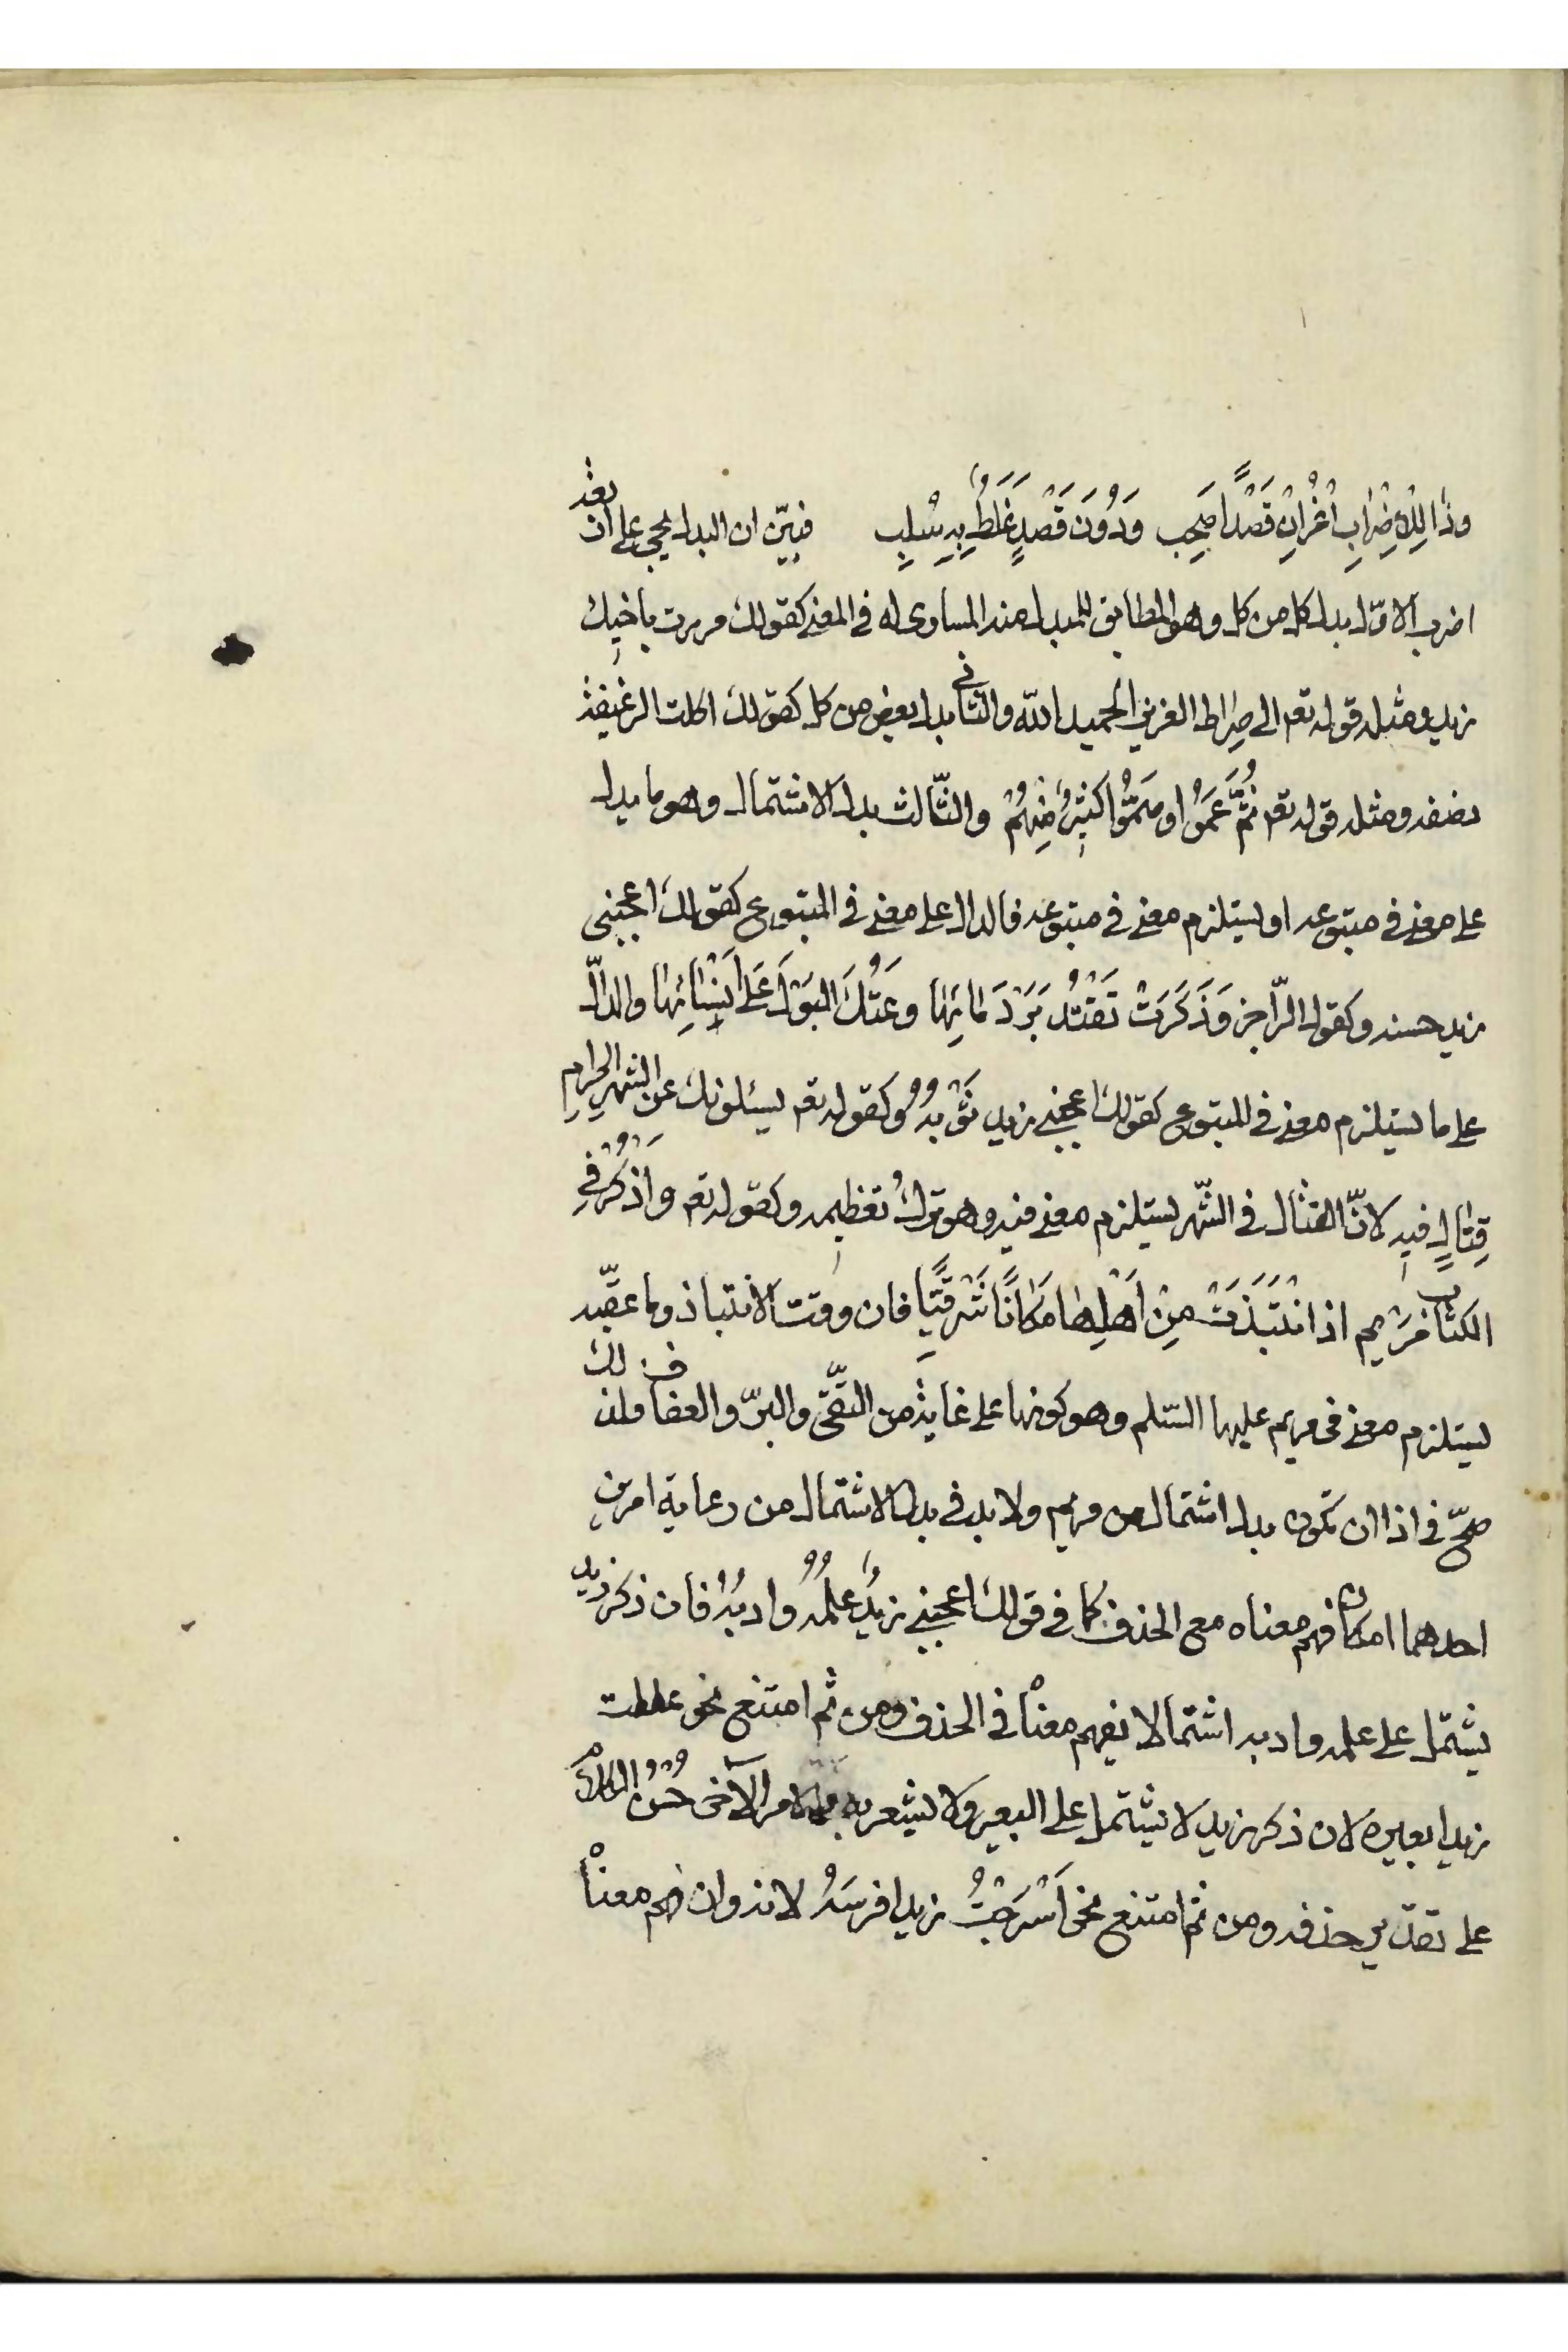 وذا للاضراب اعز ان قَصْدًا صَحِب وَدُونَ قَصْدٍ غَلَطٌ بِهِ سُلِبِ فبيّن ان البدل يجئ على اربعة
اضرب الاوّل بدل كل من كل وهو المطابق للمبدل منه المساوى له فى المعنى كقولك مررت بأخيك
زيد ومثله قوله تعم الى صِرٰاط العزيز الحميد اللّه والثانى بدل بعض من كل كقولك اكلت الرغيفة
نصفه ومثله قوله تعم ثُمَّ عَمُوا وصَمُّوا كَثِيرٌ مِنهُمْ والثّالث بدل الاشتمال وهو ما يدل
على معنى فى متبوعه او يستلزم معنى فى متبوعه فالدال على معنى فى المتبوع كقولك اعجبنى
زيد حسنه وكقول الرّاجز وَذَكَرَتْ تَقْتُدَ بَرْدَ مٰائِهٰا وعَتَكُ البَوْلِ عَلٰى اَنْسٰائِهٰا والدالّ
على ما يستلزم معنى فى المتبوع كقولك اعجبنى زيد ثَوْبُهُ وكقوله تعم يسئلونك عن الشهر الحرامِ
قِتٰالٍ فيهِ لانّ القتال فى الشّهر يستلزم معنى فيه وهو ترك تعظيمه وكقوله تعم وَاذْكُرْ فِى
الكتٰاب مَرْيم اذ انْتَبَذَتْ مِنْ اَهْلِهٰا مَكٰانًا شَرْقيًّا فان وقت الانتباذ وما عقّبه
يستلزم معنى فى مريم عليها السّلم وهو كونها على غاية من التقى والبرّ والعفاف فلذلك
صحّ فى اذ ان تكون بدل اشتمال من مريم ولا بد فى بدل الاشتمال من رعاية امرين
احدهما امكان فهم معناه مع الحذف كما فى قولك اعجبنى زيدٌ علمُهُ وادبُهُ فان ذكر زيد
يشتمل على علمه وادبه اشتمالا يفهم معناه فى الحذف ومن ثم امتنع نحو عقلت
زيدا بعيره لان ذكر زيد لا يشتمل على البعير ولا يشعر به والامر الآخر حُسْنُ الكلام
على تقدير حذفه ومن ثم امتنع نحو اَسْرَجْتُ زيدا فرسَهُ لانه وان فهم معناه